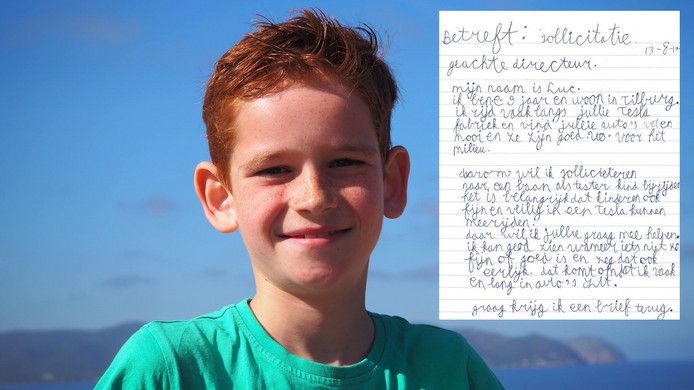 Betreft: sollicitatie.
13-8-1
geachte directeur.
mijn naam is Luc.
ik ben 9 jaar en woon in Tilburg.
ik rijd vaak langs jullie Tesla
fabriek en vind jullie auto's
mooi en ze zijn goed voor het
milieu.
daarom wil ik solliciteren
naar een baan als tester kind
het is belangrijk dat kinderen ook
fijn en veilig in een Tesla kunnen
meerijden.
daar wil ik jullie graag mee helpen.
ik kan goed zien wanneer iets niet zo
fijn of goed is en zeg dat ook
eerlijk. dat komt omdat ik vaak
en lang in auto's zit.
graag krijg ik een brief terug.